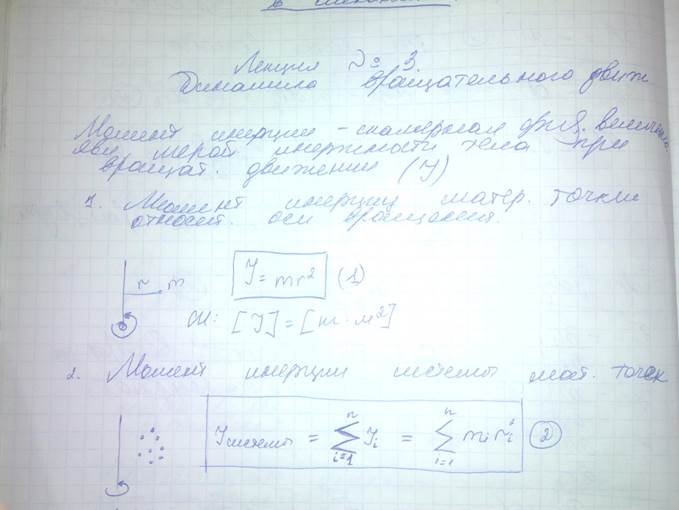 Лекция № 3.
Динамика вращательного движ
Момент инерции - скалярная физ. величина
явл. мерой инертности тела при
вращат. движении (J)
1. Момент инерции матер. точки
относит. оси вращения.
r m
J = mr² (1)
СИ: [J] = [кг · м²]
2. Момент инерции системы мат. точек
Jсистемы = ∑ⁿᵢ₌₁ Jᵢ = ∑ⁿᵢ₌₁ mᵢrᵢ² (2)